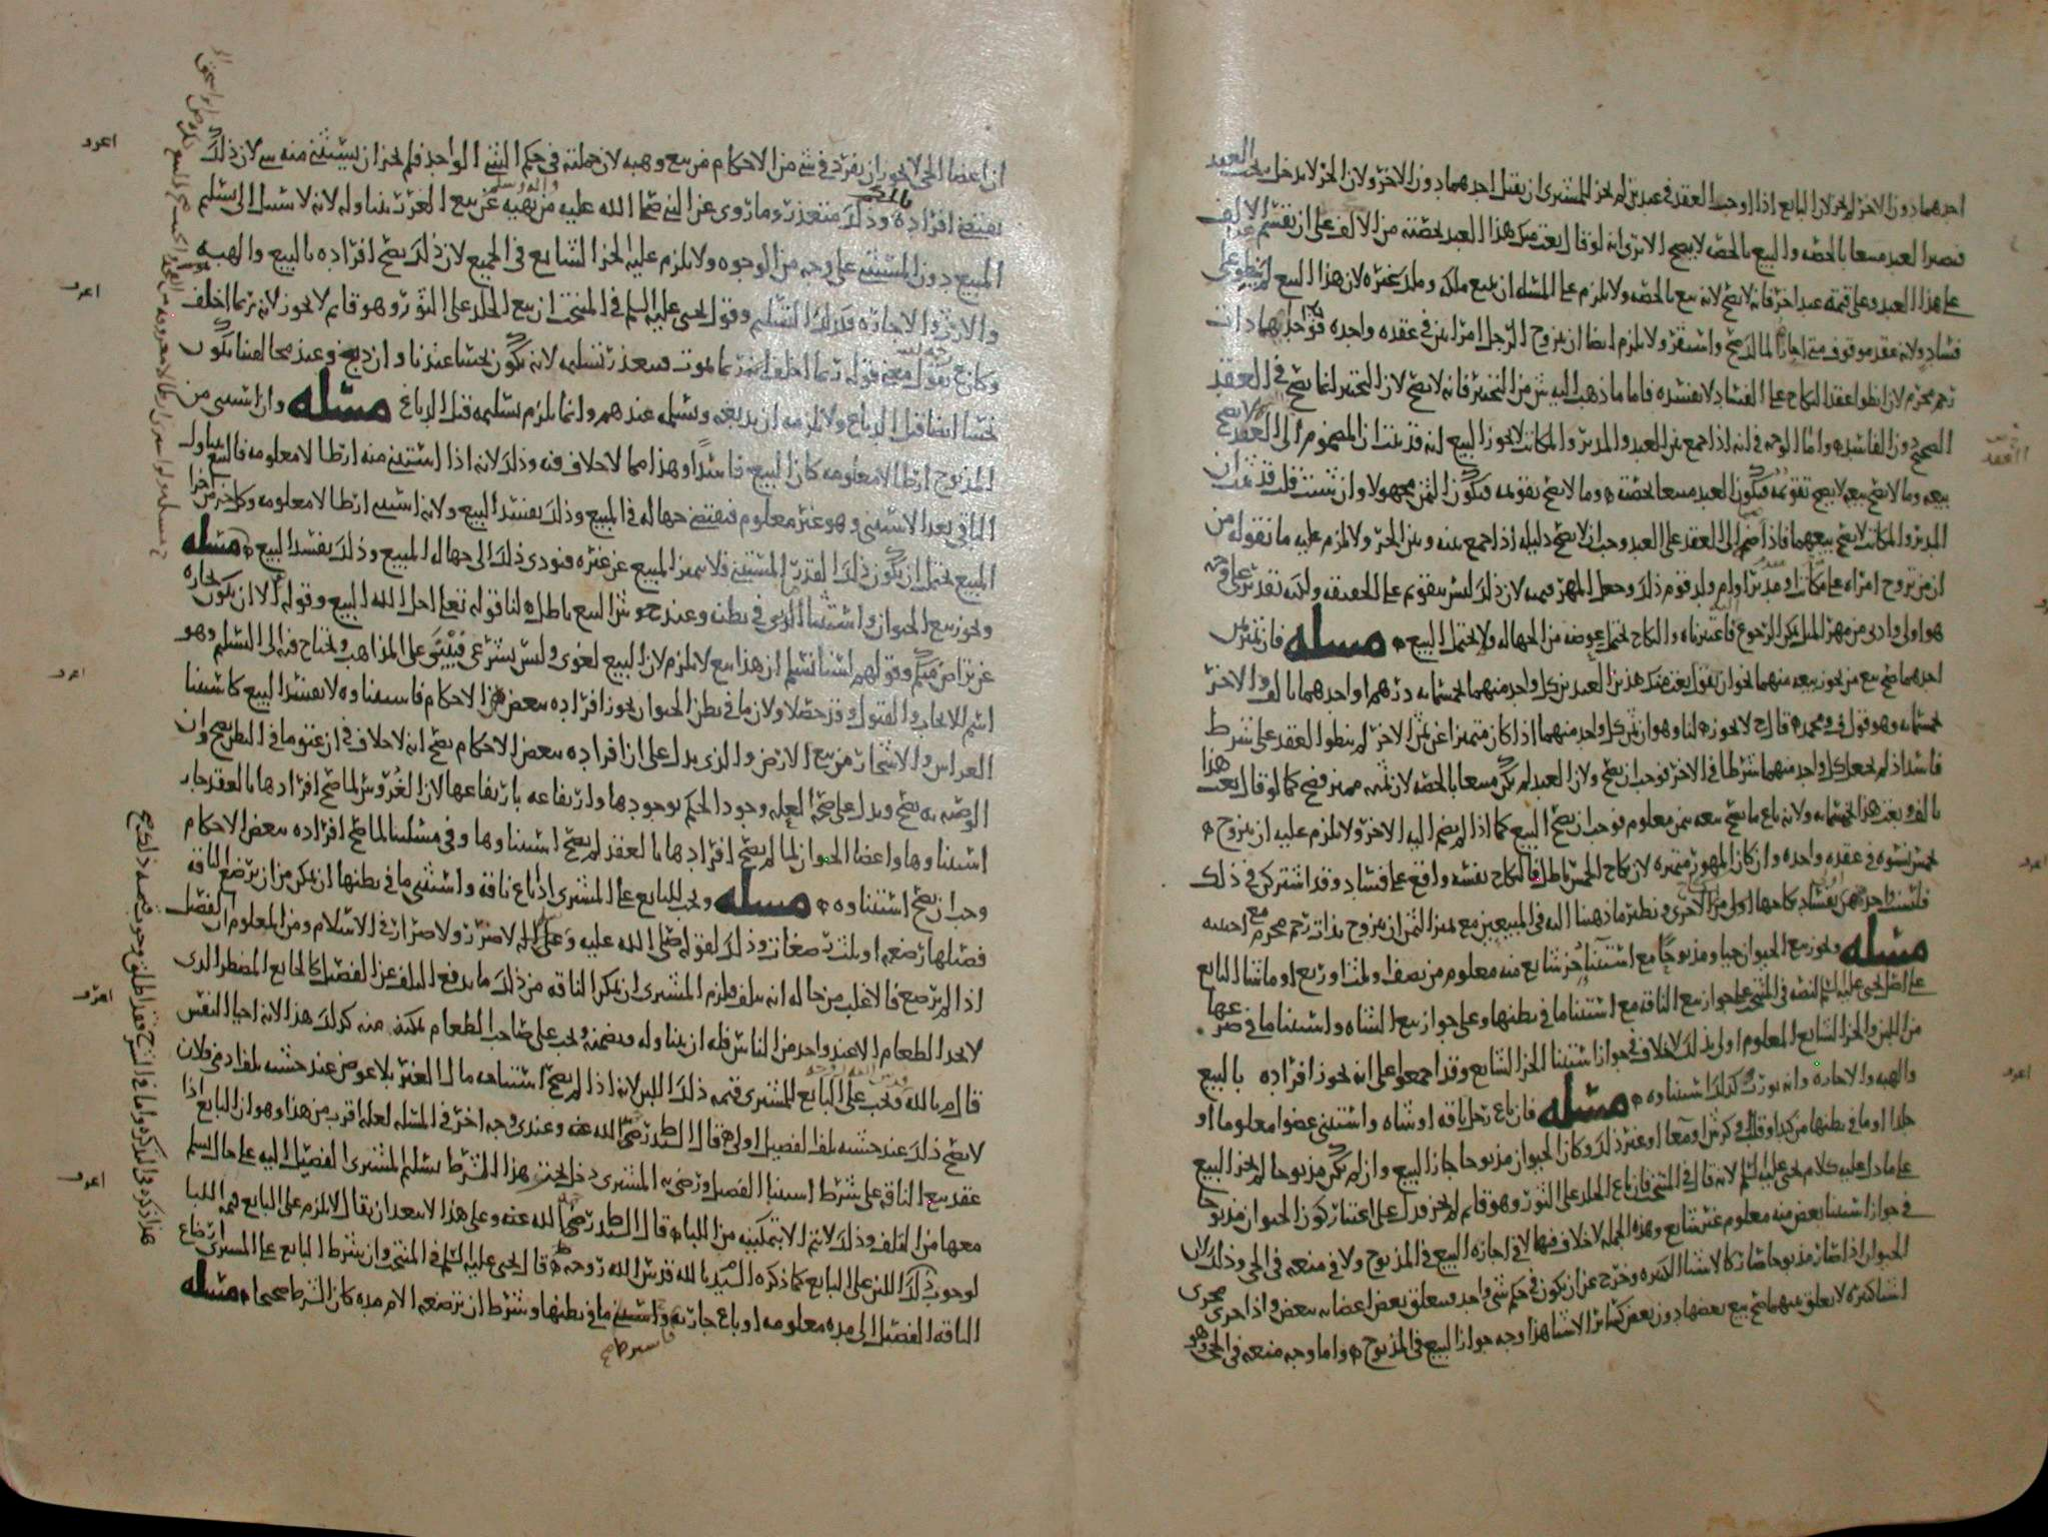 احدهما دون الاخر لم يجز لان البايع اذا اوجب العقد في عبدين لم يجز للمشتري ان يقبل احدهما دون الاخر ولان الحر لا يدخل تحت العقد
فيصير العبد مبيعا بالحصه والبيع بالحصه لا يصح الا ترى انه لو قال بعت منك هذا العبد بحصته من الالف على ان يقسم الالف
على هذا العبد وعلى قيمة عبد اخر فانه لا يصح لانه بيع بالحصه ولا يلزم على المسله ان يبيع ملكه وملك غيره لان هذا البيع لم ينطو على
فساد ولانه عقد موقوف متى اجاز المالك صح واستقر ولا يلزم ايضا ان يزوج الرجل امراتين في عقده واحده احداهما ذات
رحم محرم لان انطوا عقد النكاح على الفساد لا يفسده فاما ما ذهب اليه من التخيير فانه لا يصح لان التخيير انما يصح في العقد
الصحيح دون الفاسده واما الوجه في انه اذا جمع بين العبد والمدبر والمكاتب لا يجوز البيع انه قد ثبت ان المضموم الى العقد لا يصح
بيعه وما لا يصح بيعه لا يصح تقويمه فيكون العبد مبيعا بالحصه وما لا يصح تقويمه فيكون الثمن مجهولا وان شيت قلت قد ثبت ان
المدبر والمكاتب لا يصح بيعهما فاذا ضم الى العقد على العبد وجب ان لا يصح دليله اذا جمع بينه وبين الحر ولا يلزم عليه ما نقوله من
ان من تزوج امراه على مكاتب او مدبر او ام ولد قوم ذلك وجعل المهر قيمته لان ذلك ليس بتقويم على الحقيقه ولكنه تقدير على وجه
هو اولى وادنى من مهر المثل يمكن الرجوع فاعتبرناه والنكاح يحتمل عوضه من الجهاله ولا يحتمل البيع ه مسله فان تميز ثمن
احدهما صح بيع من يجوز بيعه منهما نحو ان يقول بعت منك هذين العبدين كل واحد منهما بخمسمايه درهم او احدهما بالف والاخر
بخمسمايه وهو قول ف ومحمد ه قال ح لا يجوز ه لنا وهو ان ثمن كل واحد منهما اذا كان متميزا عن ثمن الاخر لم ينطو العقد على شرط
فاسد اذ لم يجعل كل واحد منهما شرطا في الاخر فوجب ان يصح ولان العبد لم يكن مبيعا بالحصه لان ثمنه مميز فصح كما لو قال بعت هذا
بالف وبعت هذا بخمسمايه ولانه باع ما يصح بيعه بثمن معلوم فوجب ان يصح البيع كما اذا لم يضم اليه الاخر ولا يلزم عليه ان يتزوج ه
خمس نسوه في عقده واحده وان كان المهور متميزه لان نكاح الخمس باطل فالنكاح نفسه واقع على فساد وقد اشتركن في ذلك
فليست واحده منهن بفساد نكاحها اولى من الاخرى ونظير ما ذهبنا اليه في المبيعين مع تميز الثمن ان يتزوج بذات رحم محرم مع اجنبيه
مسله ويجوز بيع الحيوان حيا ومذبوحا مع استثنا جز شايع منه معلوم من نصف او ثلث او ربع او ما شا البايع
على اصل يحيى عليه السلم النصه في المنتخب على جواز بيع الناقه مع استثنا ما في بطنها وعلى جواز بيع الشاه واستثنا ما في ضرعها
من اللبن والجز الشايع المعلوم اولى بذلك لا خلاف في جواز استثنا الجز الشايع وقد اجمعوا على انه يجوز افراده بالبيع
والهبه والاجاره وانه يورث كذلك استثناوه ه مسله فان باع رجل ناقه او شاه واستثنى عضوا معلوما او
جلدا او ما في بطنها من كبد او قلب او كرش او معا او غير ذلك وكان الحيوان مذبوحا جاز البيع وان لم يكن مذبوحا لم يجز البيع
على ما دل عليه كلام يحيى عليه السلم لانه قال في المنتخب فان باع الجلد على الثور وهو قايم لم يجز فدل على اعتبار كون الحيوان مذبوحا
في جواز استثنا بعض منه معلوم غير شايع وهذه الجمله لا خلاف فيها لا في اجازه البيع في المذبوح ولا في منعه في الحي وذلك لان
الحيوان اذا صار مذبوحا صار كالاشيا الكثيره وخرج عن ان يكون في حكم شي واحد فيتعلق بعض اعضايه ببعض واذا جرى مجرى
اشيا كثيره لا تعلق بينهما صح بيع بعضها دون بعض كساير الاشيا هذا وجه جواز البيع في المذبوح ه واما وجه منعه في الحي وهو
ان اعضا الحي لا يجوز ان يفرد في شي من الاحكام من بيع وهبه لان جملته في حكم الشي الواحد فلم يجز ان يستثنى منه شي لان ذلك
يقتضي افراده بالحكم وذلك متعذر وما روي عن النبي صلى الله عليه واله وسلم من نهيه عن بيع الغرر يتناوله لانه لا سبيل الى تسليم
المبيع دون المستثنى على وجه من الوجوه ولا يلزم عليه الجز الشايع في الجميع لان ذلك يصح افراده بالبيع والهبه
والارث والاجاره فكذلك التسليم وقول يحيى عليه السلم في المنتخب ان بيع الجلد على الثور وهو قايم لا يجوز لانه ربما اخلف
وكان ع يقول معنى قوله ربما اخلف انه ربما يموت فيتعذر تسليمه لانه يكون نجسا عندنا وان دبغ وعند مخالفينا يكون
نجسا ايضا قبل الدباغ ولا يلزمه ان يدبغه ويسلمه عندهم وانما يلزم تسليمه قبل الدباغ مسله وان استثنى من
المذبوح ارطالا معلومه كان البيع فاسدا وهذا مما لا خلاف فيه وذلك لانه اذا استثنى منه ارطالا معلومه فالبيع تناول
الباقي بعد الاستثنى وهو غير معلوم فيقتضي جهاله في المبيع وذلك يفسد البيع ولانه استثنى ارطالا معلومه وكل جز من اجزا
المبيع يحتمل ان يكون ذلك القدر المستثنى فلا يتميز المبيع عن غيره فيودي ذلك الى جهاله المبيع وذلك يفسد البيع ه مسله
ويجوز بيع الحيوان واستثنا الذي في بطنه وعند ح وش البيع باطل ه لنا قوله تعالى احل الله البيع وقوله الا ان يكون تجاره
عن تراض منكم وقولهم لسنا نسلم ان هذا بيع لا يلزم لان البيع لغوي وليس بشرعي فيبنى على المذاهب ويحتاج فيه الى التسليم وهو
اسم للايجاب والقبول وقد حصلا ولان ما في بطن الحيوان يجوز افراده ببعض من الاحكام فاستثناوه لا يفسد البيع كاستثنا
الغراس والاشجار من بيع الارض والذي يدل على ان افراده ببعض الاحكام يصح انه لا خلاف في ان عتق ما في البطن يصح وان
الوصيه به تصح ويدل على صحه العله وجود الحكم بوجودها وارتفاعه بارتفاعها لان الغروس لما صح افرادها بالعقد جاز
استثناوها واعضا الحيوان لما لم يصح افرادها بالعقد لم يصح استثناوها وفي مسلتنا لما صح افراده ببعض الاحكام
وجب ان يصح استثناوه ه مسله ويجب للبايع على المشتري اذا باع ناقه واستثنى ما في بطنها ان يمكن من ان ترضع الناقه
فصيلها رضعه او ثلث رضعات وذلك لقوله صلى الله عليه وعلى اله لا ضرر ولا ضرار في الاسلام ومن المعلوم ان الفصيل
اذا لم يرضع فالاغلب من حاله انه يتلف فيلزم المشتري ان يمكن الناقه من ذلك ما يدفع التلف عن الفصيل كالجايع المضطر الذي
لا يجد الطعام الا عند واحد من الناس فله ان يتناوله ويضمنه ويجب على صاحب الطعام تمكينه منه كذلك هذا لانه احيا النفس
قال م بالله ويجب على البايع للمشتري قيمه ذلك اللبن لانه اذا لم يصح استباحه مال الغير بلا عوض عند خشيه تلف ادمي فلان
لا يصح ذلك عند خشيه تلف الفصيل اولى ه قال السيد ط رضي الله عنه وعندي وجه اخر في المسله لعله اقرب من هذا وهو ان البايع اذا
عقد بيع الناقه على شرط استثنا الفصيل ورضي به المشتري دخل تحت هذا الشرط تسليم المشتري الفصيل اليه على حال يسلم
معها من التلف وذلك لا يتم الا بتمكينه من اللبا ه قال السيد ط رضي الله عنه وعلى هذا لا يبعد ان يقال لا يلزم على البايع قيمه اللبا
لوجوب ذلك اللبن على البايع كما ذكره السيد بالله قدس الله روحه ه قال يحيى عليه السلم في المنتخب وان شرط البايع على المشتري ارضاع
الناقه الفصيل الى مده معلومه او باع جاريه واستثنى ما في بطنها وشرط ان ترضعه الام مده كان الشرط صحيحا ه مسله